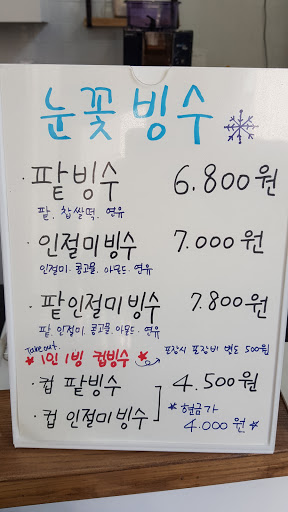 눈꽃빙수
· 팥빙수 6.800원
팥. 찹쌀떡. 연유
· 인절미빙수 7.000원
인절미. 콩고물. 아몬드. 연유
· 팥인절미빙수 7.800원
팥. 인절미. 콩고물. 아몬드. 연유
Take out. 포장시 포장비 별도 500원
* 1인 1빙 컵빙수 *
· 컵 팥빙수 4.500원
· 컵 인절미빙수 * 현금가
4.000원 *